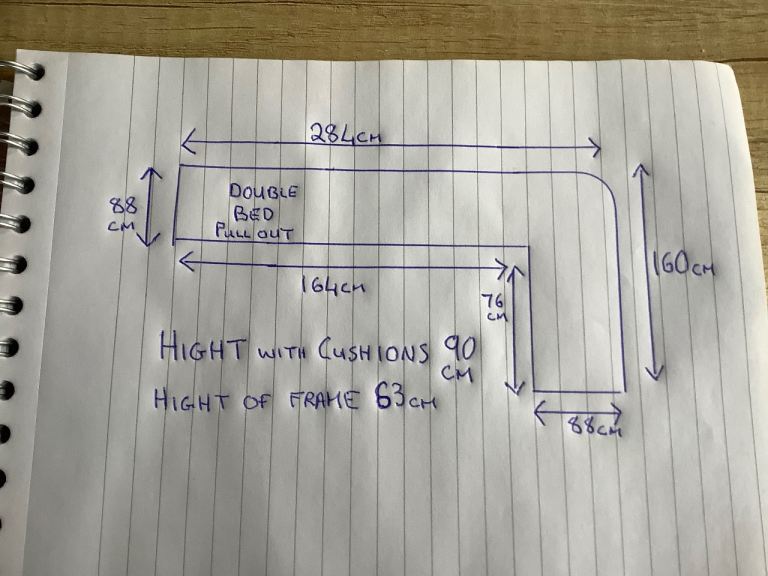 284cm
88
cm
DOUBLE
BED
PULL OUT
160cm
164cm
76
cm
HIGHT WITH CUSHIONS 90
cm
HIGHT OF FRAME 63cm
88cm